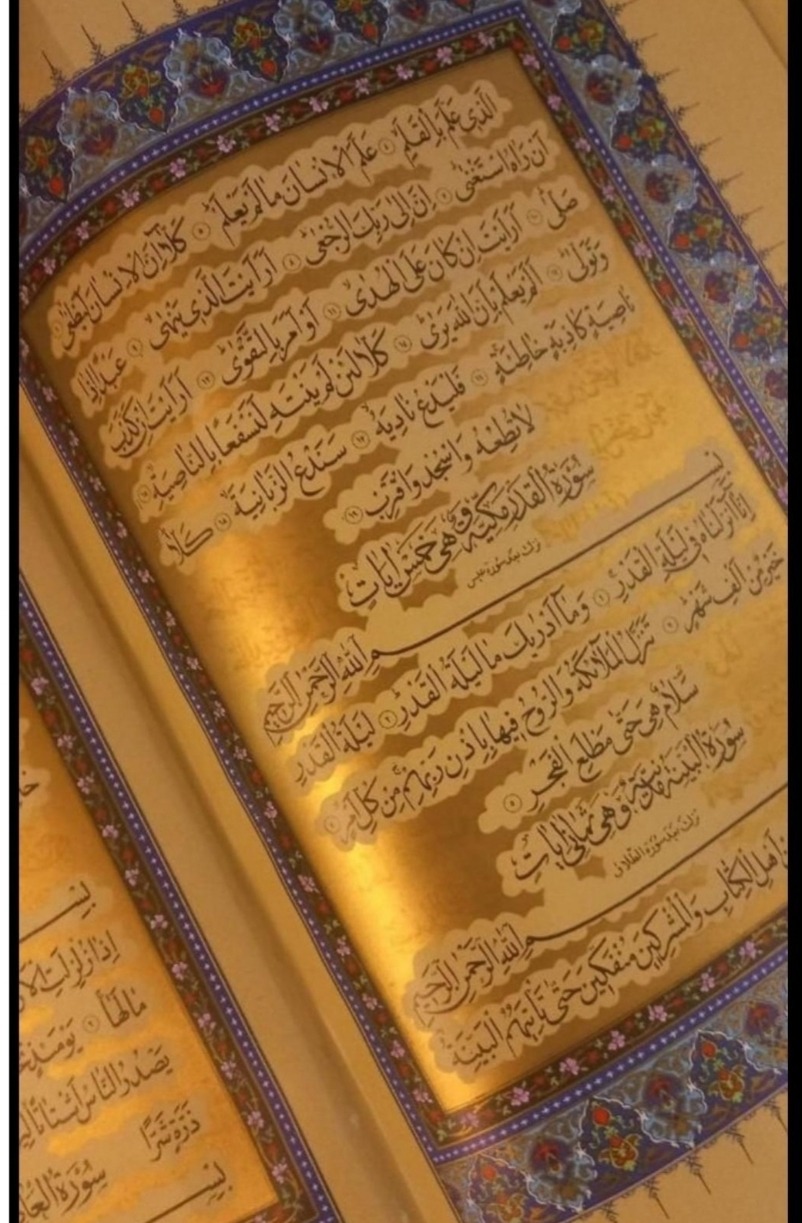 اَلَّذِي عَلَّمَ بِالْقَلَمِ ٤ عَلَّمَ الْاِنْسَانَ مَا لَمْ يَعْلَمْ ٥ كَلَّا اِنَّ الْاِنْسَانَ لَيَطْغٰى ٦
اَنْ رَاٰهُ اسْتَغْنٰى ٧ اِنَّ اِلٰى رَبِّكَ الرُّجْعٰى ٨ اَرَاَيْتَ الَّذِي يَنْهٰى ٩ عَبْدًا اِذَا
صَلّٰى ١٠ اَرَاَيْتَ اِنْ كَانَ عَلَى الْهُدٰى ١١ اَوْ اَمَرَ بِالتَّقْوٰى ١٢ اَرَاَيْتَ اِنْ كَذَّبَ
وَتَوَلّٰى ١٣ اَلَمْ يَعْلَمْ بِاَنَّ اللّٰهَ يَرٰى ١٤ كَلَّا لَئِنْ لَمْ يَنْتَهِ لَنَسْفَعًا بِالنَّاصِيَةِ ١٥
نَاصِيَةٍ كَاذِبَةٍ خَاطِئَةٍ ١٦ فَلْيَدْعُ نَادِيَهُ ١٧ سَنَدْعُ الزَّبَانِيَةَ ١٨ كَلَّا
لَا تُطِعْهُ وَاسْجُدْ وَاقْتَرِبْ ١٩
سُورَةُ الْقَدْرِ مَكِّيَّةٌ وَهِيَ خَمْسُ اٰيَاتٍ
نزلت بعد سورة عبس
بِسْمِ اللّٰهِ الرَّحْمٰنِ الرَّحِيمِ
اِنَّا اَنْزَلْنَاهُ فِي لَيْلَةِ الْقَدْرِ ١ وَمَا اَدْرٰيكَ مَا لَيْلَةُ الْقَدْرِ ٢ لَيْلَةُ الْقَدْرِ
خَيْرٌ مِنْ اَلْفِ شَهْرٍ ٣ تَنَزَّلُ الْمَلَائِكَةُ وَالرُّوحُ فِيهَا بِاِذْنِ رَبِّهِمْ مِنْ كُلِّ اَمْرٍ ٤
سَلَامٌ هِيَ حَتّٰى مَطْلَعِ الْفَجْرِ ٥
سُورَةُ الْبَيِّنَةِ مَدَنِيَّةٌ وَهِيَ ثَمَانِي اٰيَاتٍ
نزلت بعد سورة الطلاق
بِسْمِ اللّٰهِ الرَّحْمٰنِ الرَّحِيمِ
اَهْلِ الْكِتَابِ وَالْمُشْرِكِينَ مُنْفَكِّينَ حَتّٰى تَأْتِيَهُمُ الْبَيِّنَةُ
بِسْـ
اِذَا زُلْزِلَتِ
مَا لَهَا ٣ يَوْمَئِذٍ
يَصْدُرُ النَّاسُ اَشْتَاتًا
ذَرَّةٍ شَرًّا
سُورَةُ
بِسْـ